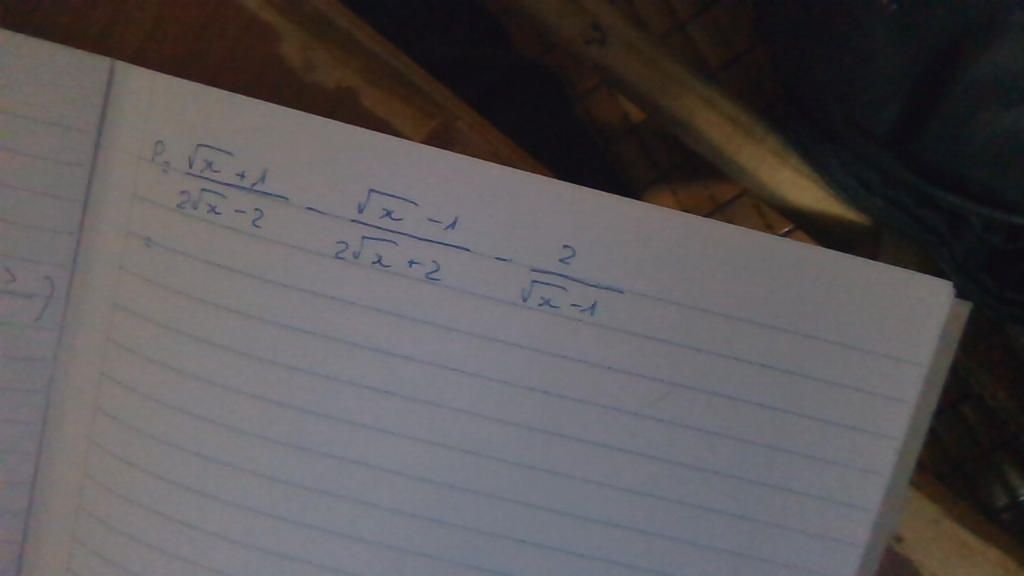 P = \frac{\sqrt{x}+1}{2\sqrt{x}-2} - \frac{\sqrt{x}-1}{2\sqrt{x}+2} - \frac{2}{\sqrt{x}-1}